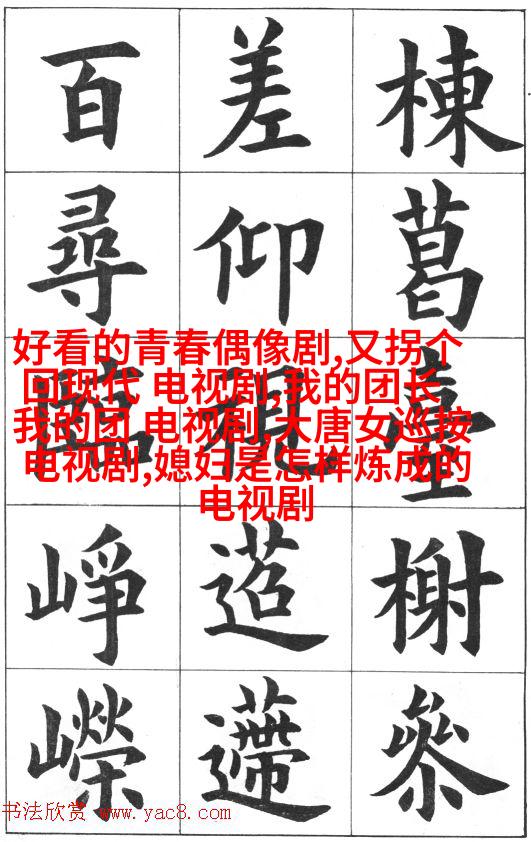 棟葛臺榭參
差仰視
百尋臨崢嶸
好看的青春偶像剧,又拐个
回现代 电视剧,我的团长
我的团 电视剧,大唐女巡按
电视剧,媳妇是怎样炼成的
电视剧
书法欣赏 www.yac8.com